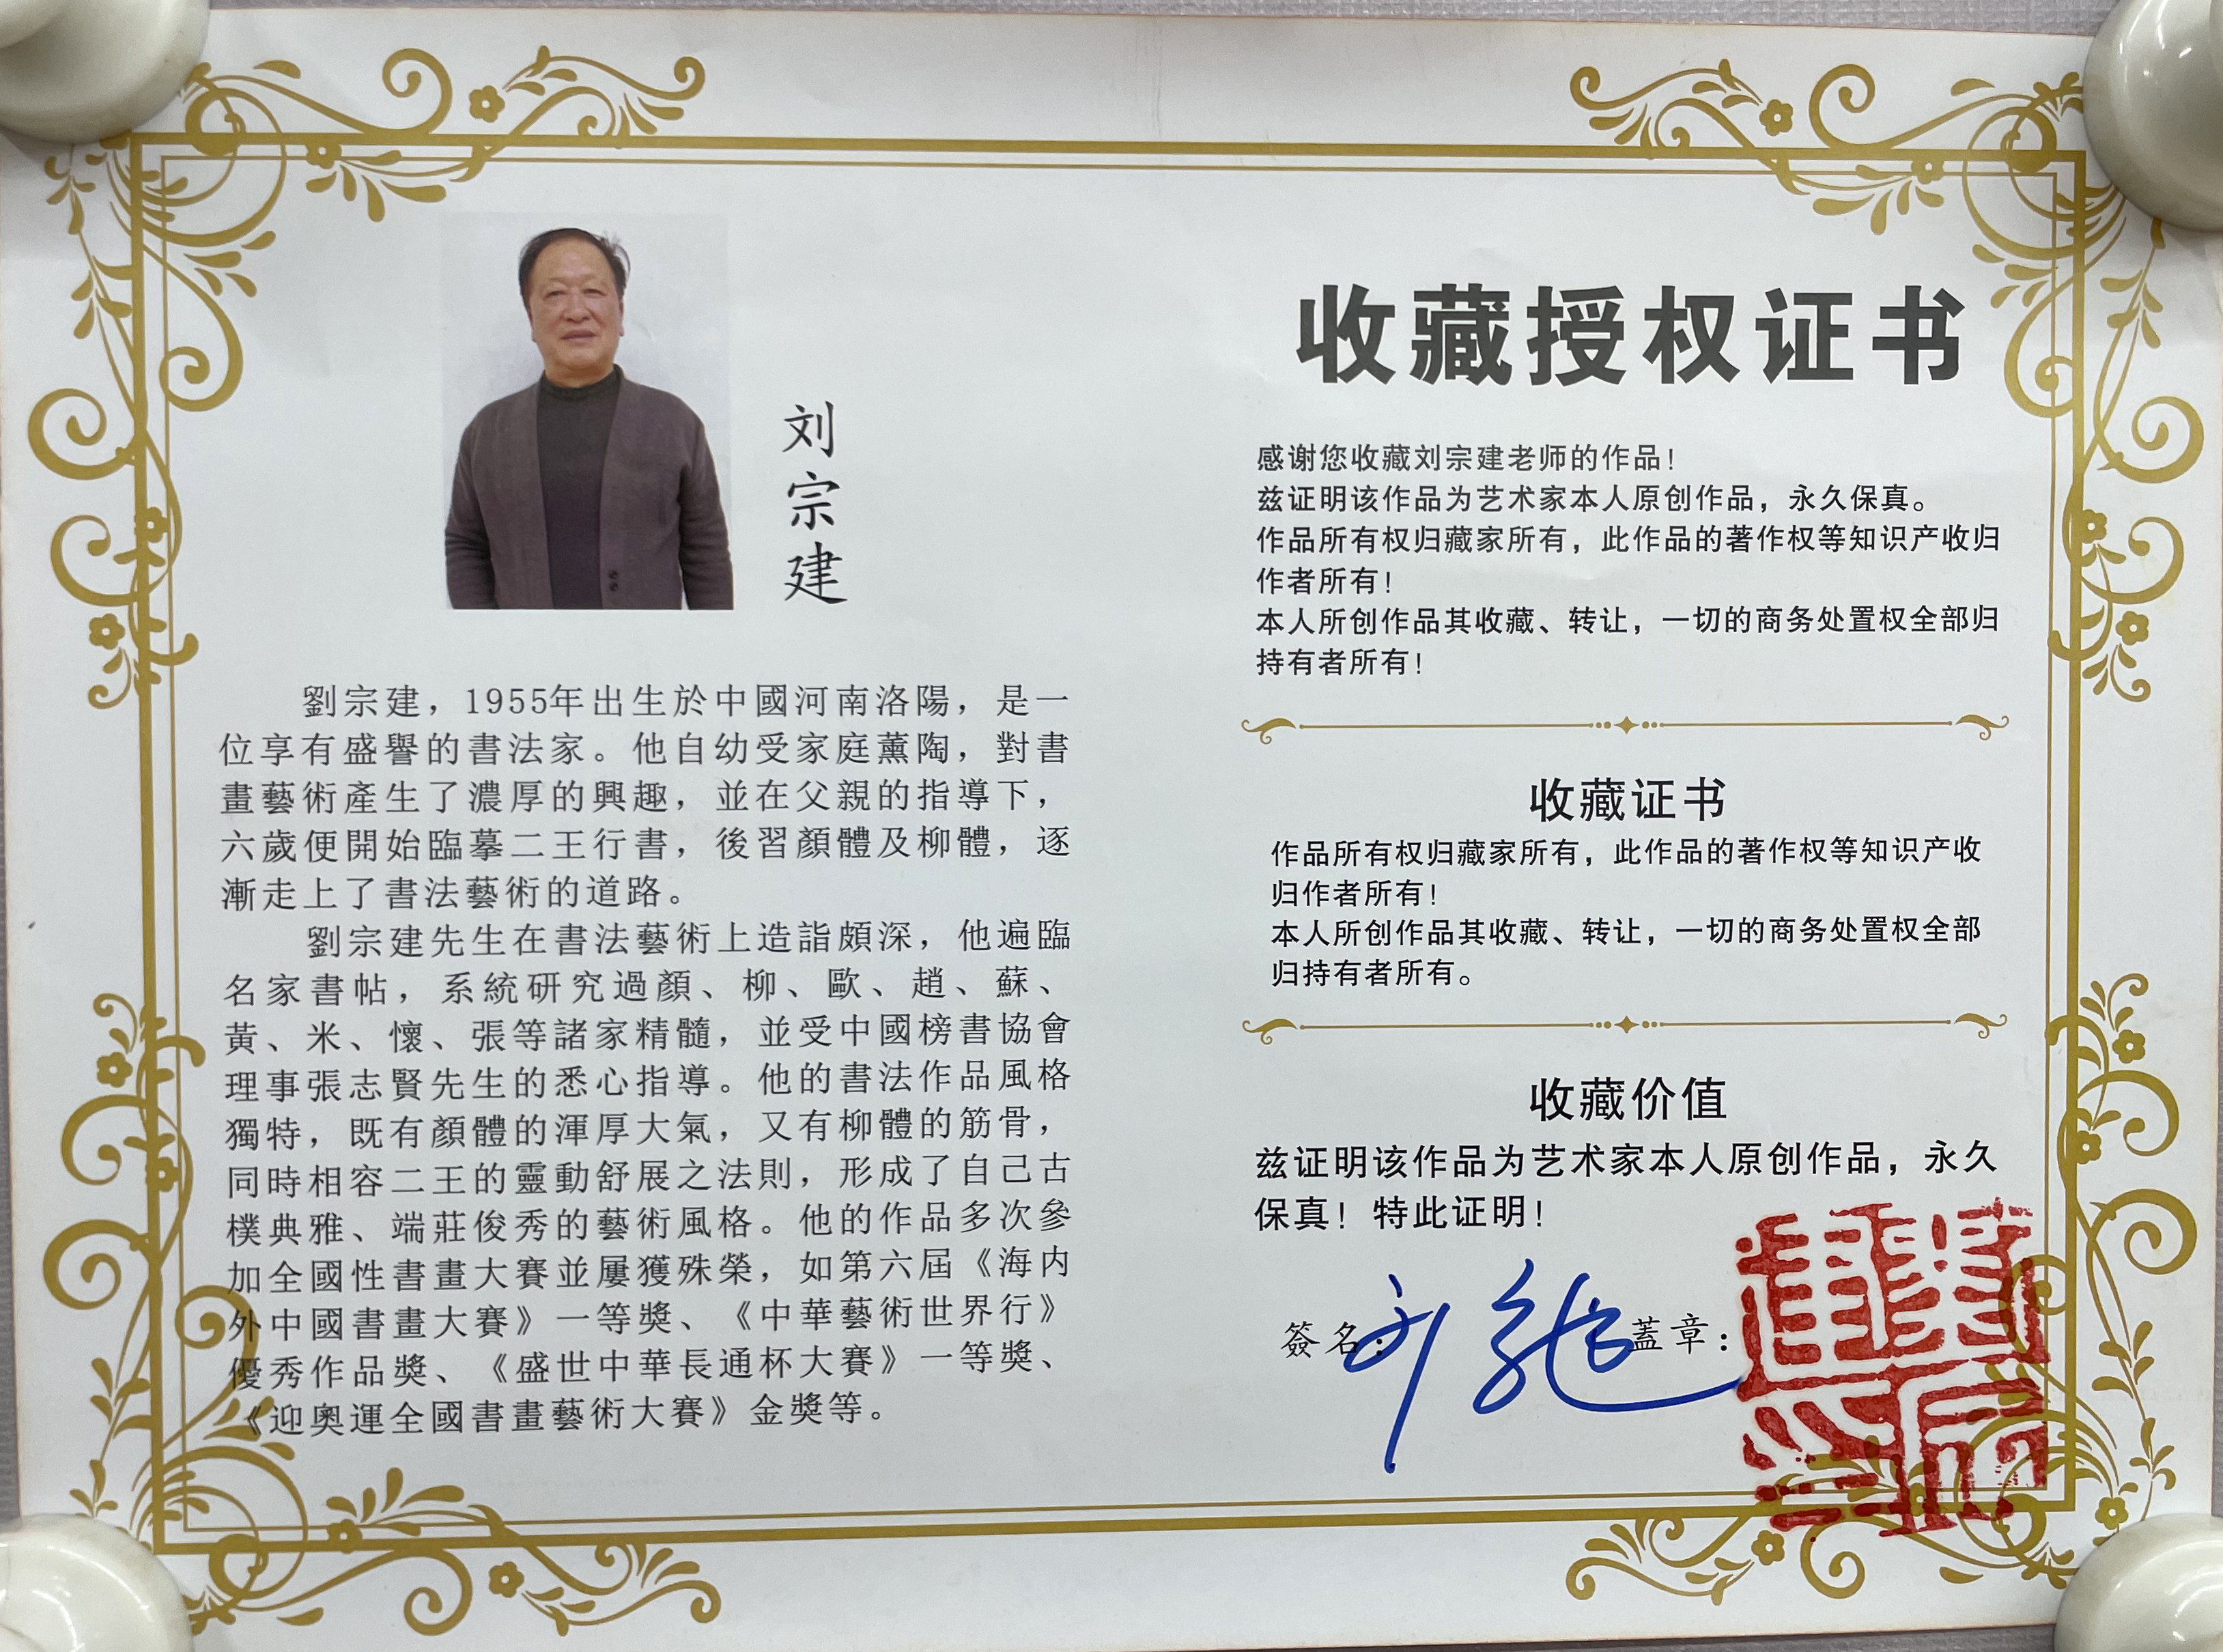 刘
宗
建
劉宗建，1955年出生於中國河南洛陽，是一
位享有盛譽的書法家。他自幼受家庭薰陶，對書
畫藝術產生了濃厚的興趣，並在父親的指導下，
六歲便開始臨摹二王行書，後習顏體及柳體，逐
漸走上了書法藝術的道路。
劉宗建先生在書法藝術上造詣頗深，他遍臨
名家書帖，系統研究過顏、柳、歐、趙、蘇、
黃、米、懷、張等諸家精髓，並受中國榜書協會
理事張志賢先生的悉心指導。他的書法作品風格
獨特，既有顏體的渾厚大氣，又有柳體的筋骨，
同時相容二王的靈動舒展之法則，形成了自己古
樸典雅、端莊俊秀的藝術風格。他的作品多次參
加全國性書畫大賽並屢獲殊榮，如第六屆《海內
外中國書畫大賽》一等獎、《中華藝術世界行》
優秀作品獎、《盛世中華長通杯大賽》一等獎、
《迎奧運全國書畫藝術大賽》金獎等。
收藏授权证书
感谢您收藏刘宗建老师的作品！
兹证明该作品为艺术家本人原创作品，永久保真。
作品所有权归藏家所有，此作品的著作权等知识产收归
作者所有！
本人所创作品其收藏、转让，一切的商务处置权全部归
持有者所有！
收藏证书
作品所有权归藏家所有，此作品的著作权等知识产收
归作者所有！
本人所创作品其收藏、转让，一切的商务处置权全部
归持有者所有。
收藏价值
兹证明该作品为艺术家本人原创作品，永久
保真！特此证明！
簽名： 蓋章：